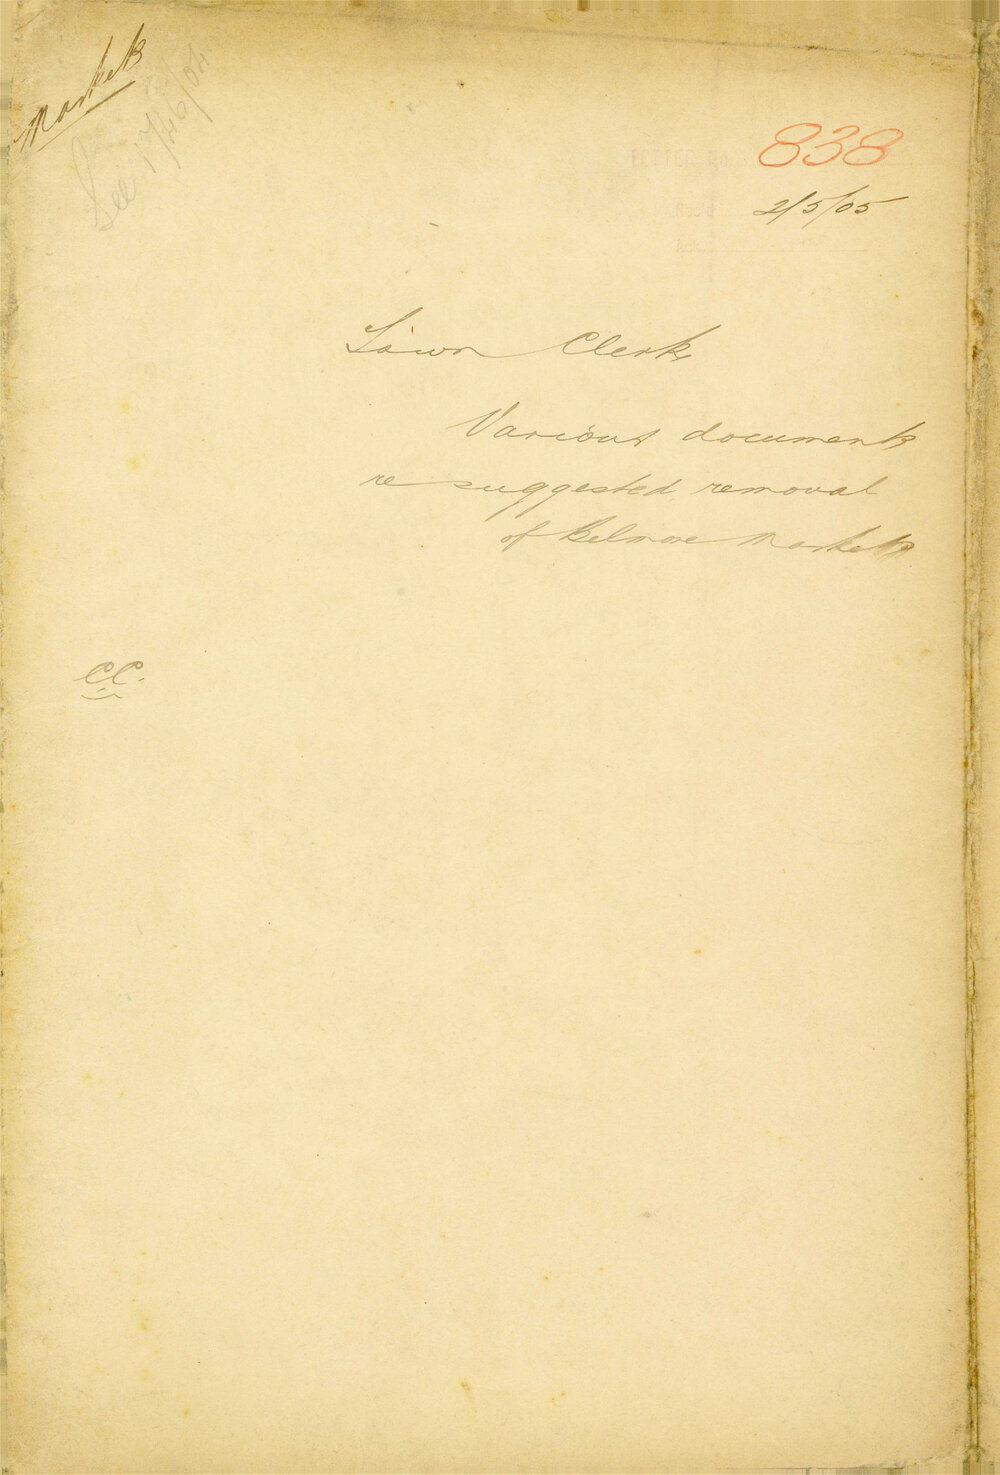 Markets
See 1746/04
838
2/5/05
Town Clerk
Various documents
re suggested removal
of Belmore Markets
C.C.